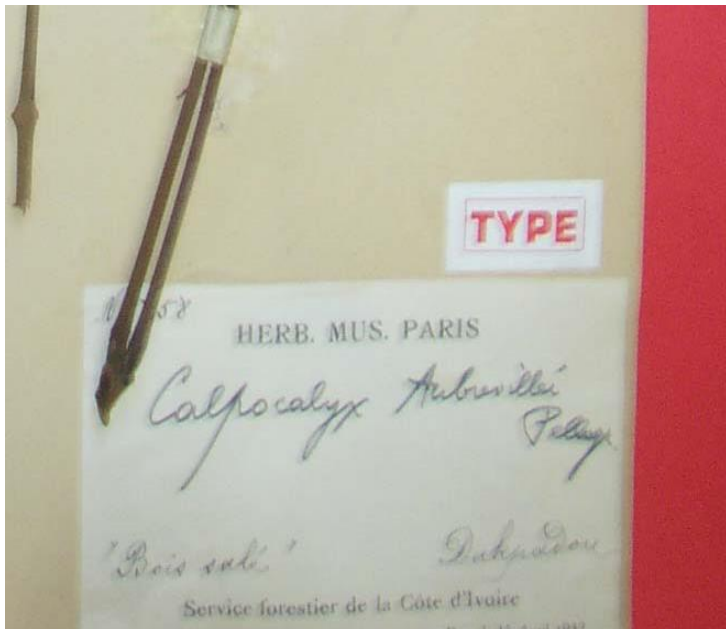 TYPE
HERB. MUS. PARIS
Calpocalyx Aubrevillei
Pellegr.
"Bois salé" Dakpadou
Service forestier de la Côte d'Ivoire